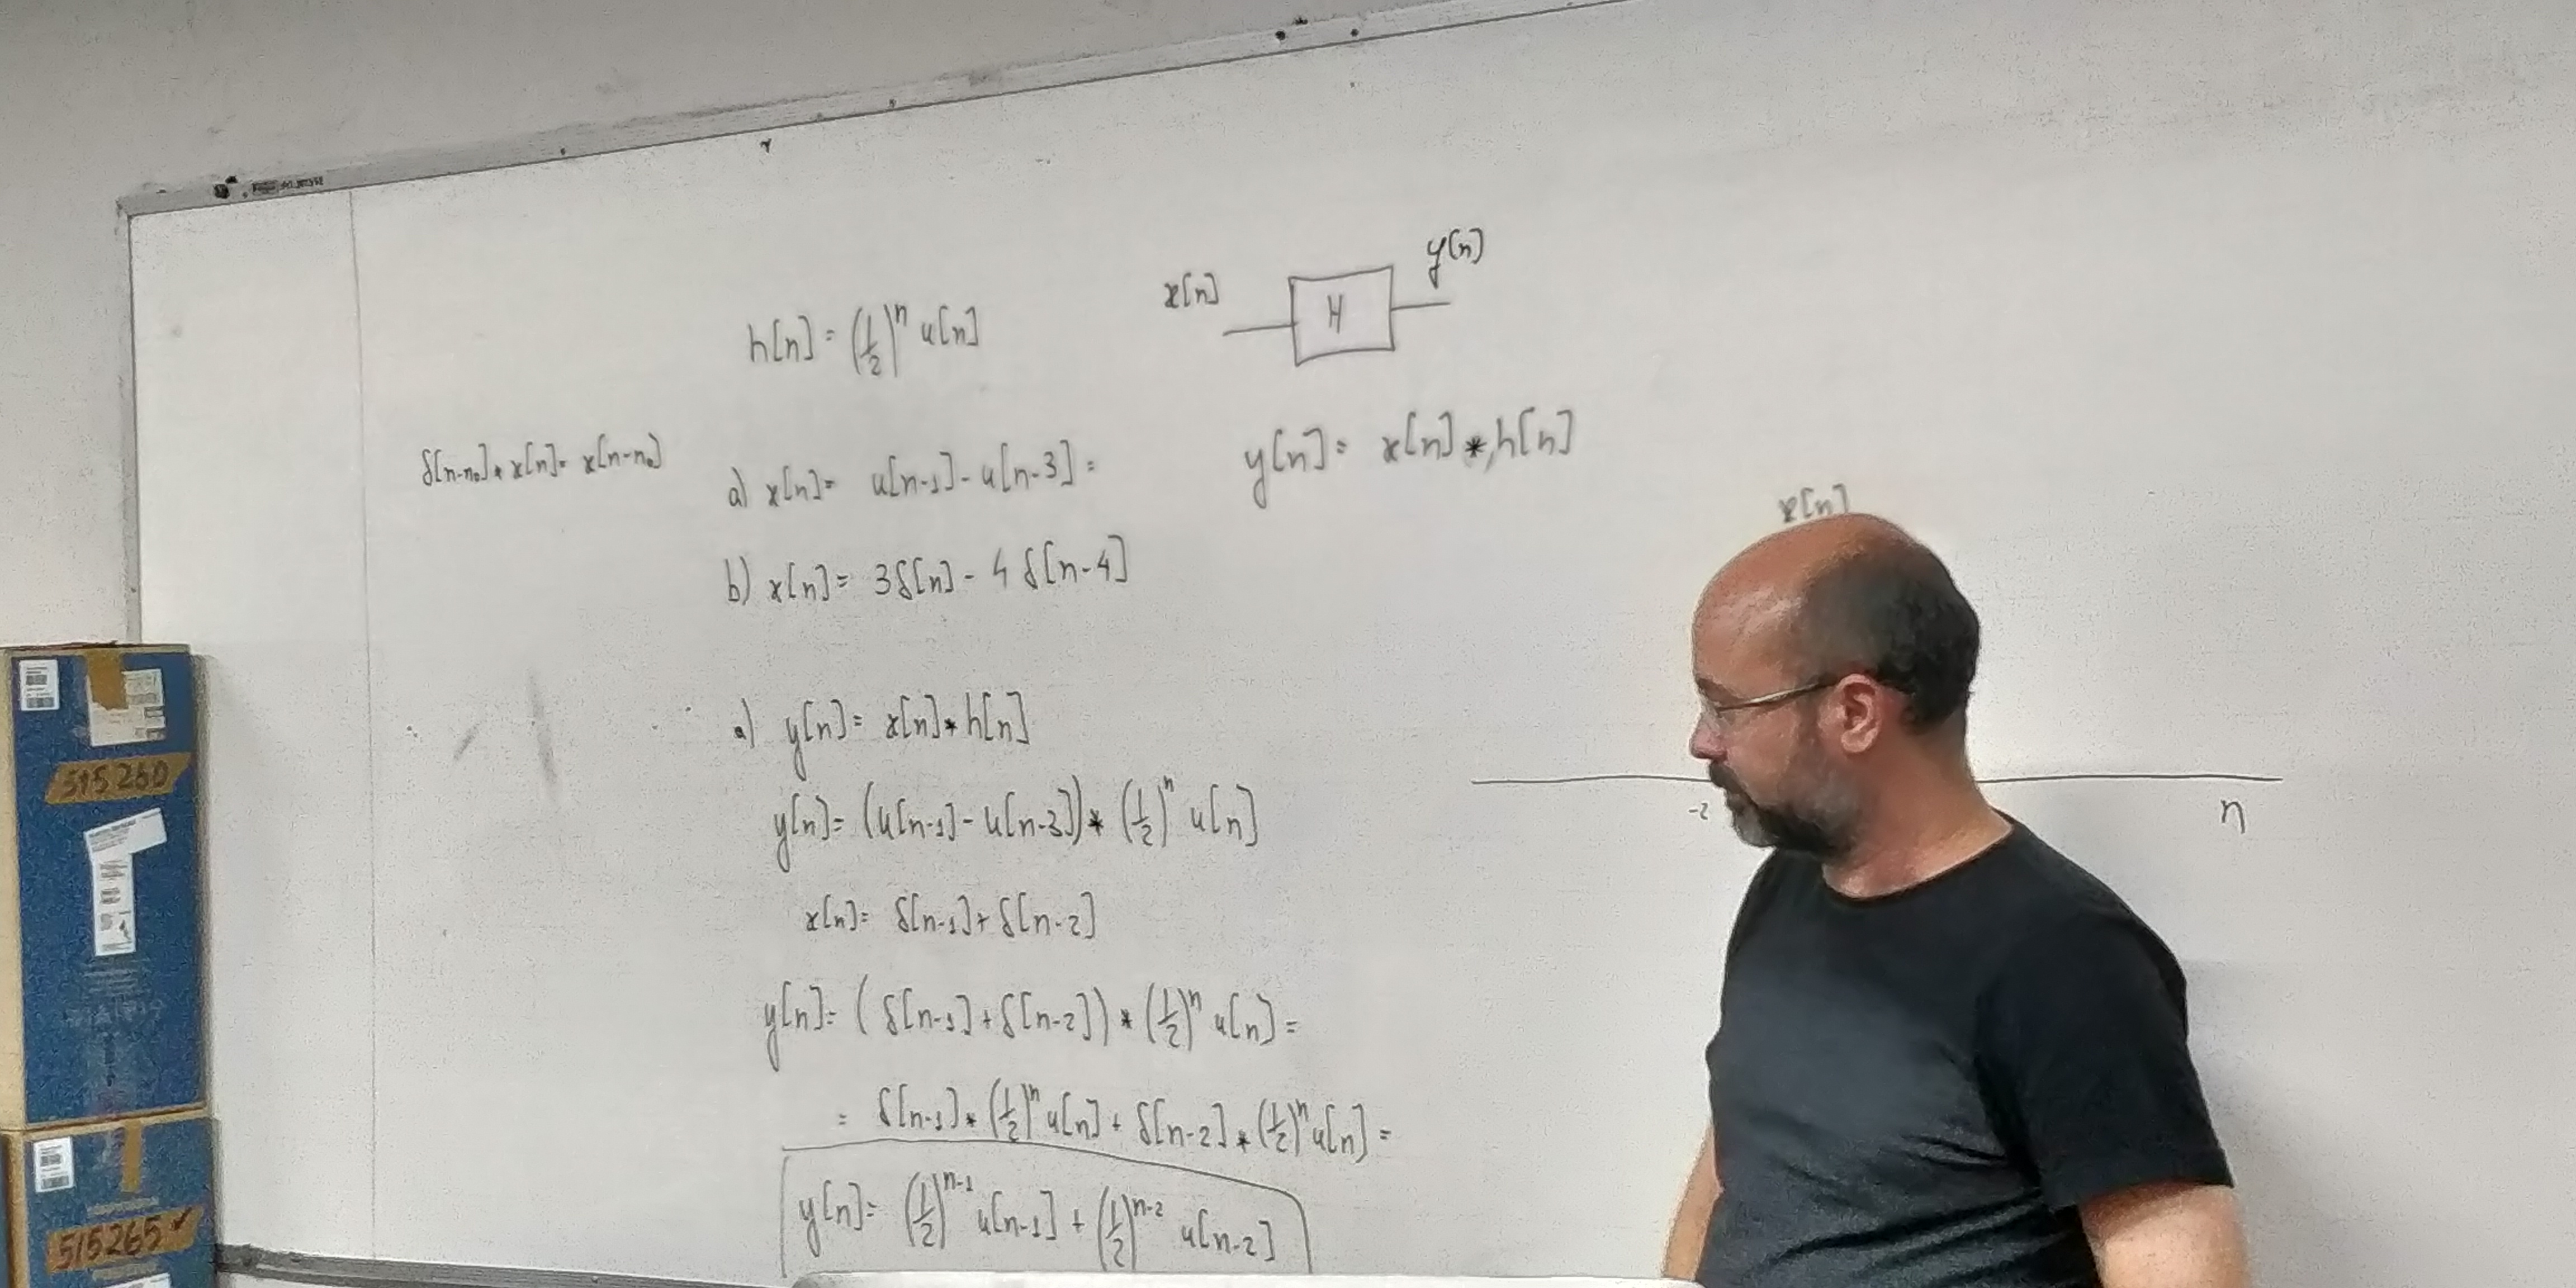 x[n] H y[n]
h[n] = (1/2)^n u[n]
δ[n-n₀] * x[n] = x[n-n₀]
a) x[n] = u[n-1] - u[n-3] =
y[n] = x[n] * h[n]
b) x[n] = 3δ[n] - 4 δ[n-4]
x[n]
-2 n
a) y[n] = x[n] * h[n]
y[n] = (u[n-1] - u[n-3]) * (1/2)^n u[n]
x[n] = δ[n-1] + δ[n-2]
y[n] = (δ[n-1] + δ[n-2]) * (1/2)^n u[n] =
= δ[n-1] * (1/2)^n u[n] + δ[n-2] * (1/2)^n u[n] =
y[n] = (1/2)^(n-1) u[n-1] + (1/2)^(n-2) u[n-2]
515260
515265 ✓